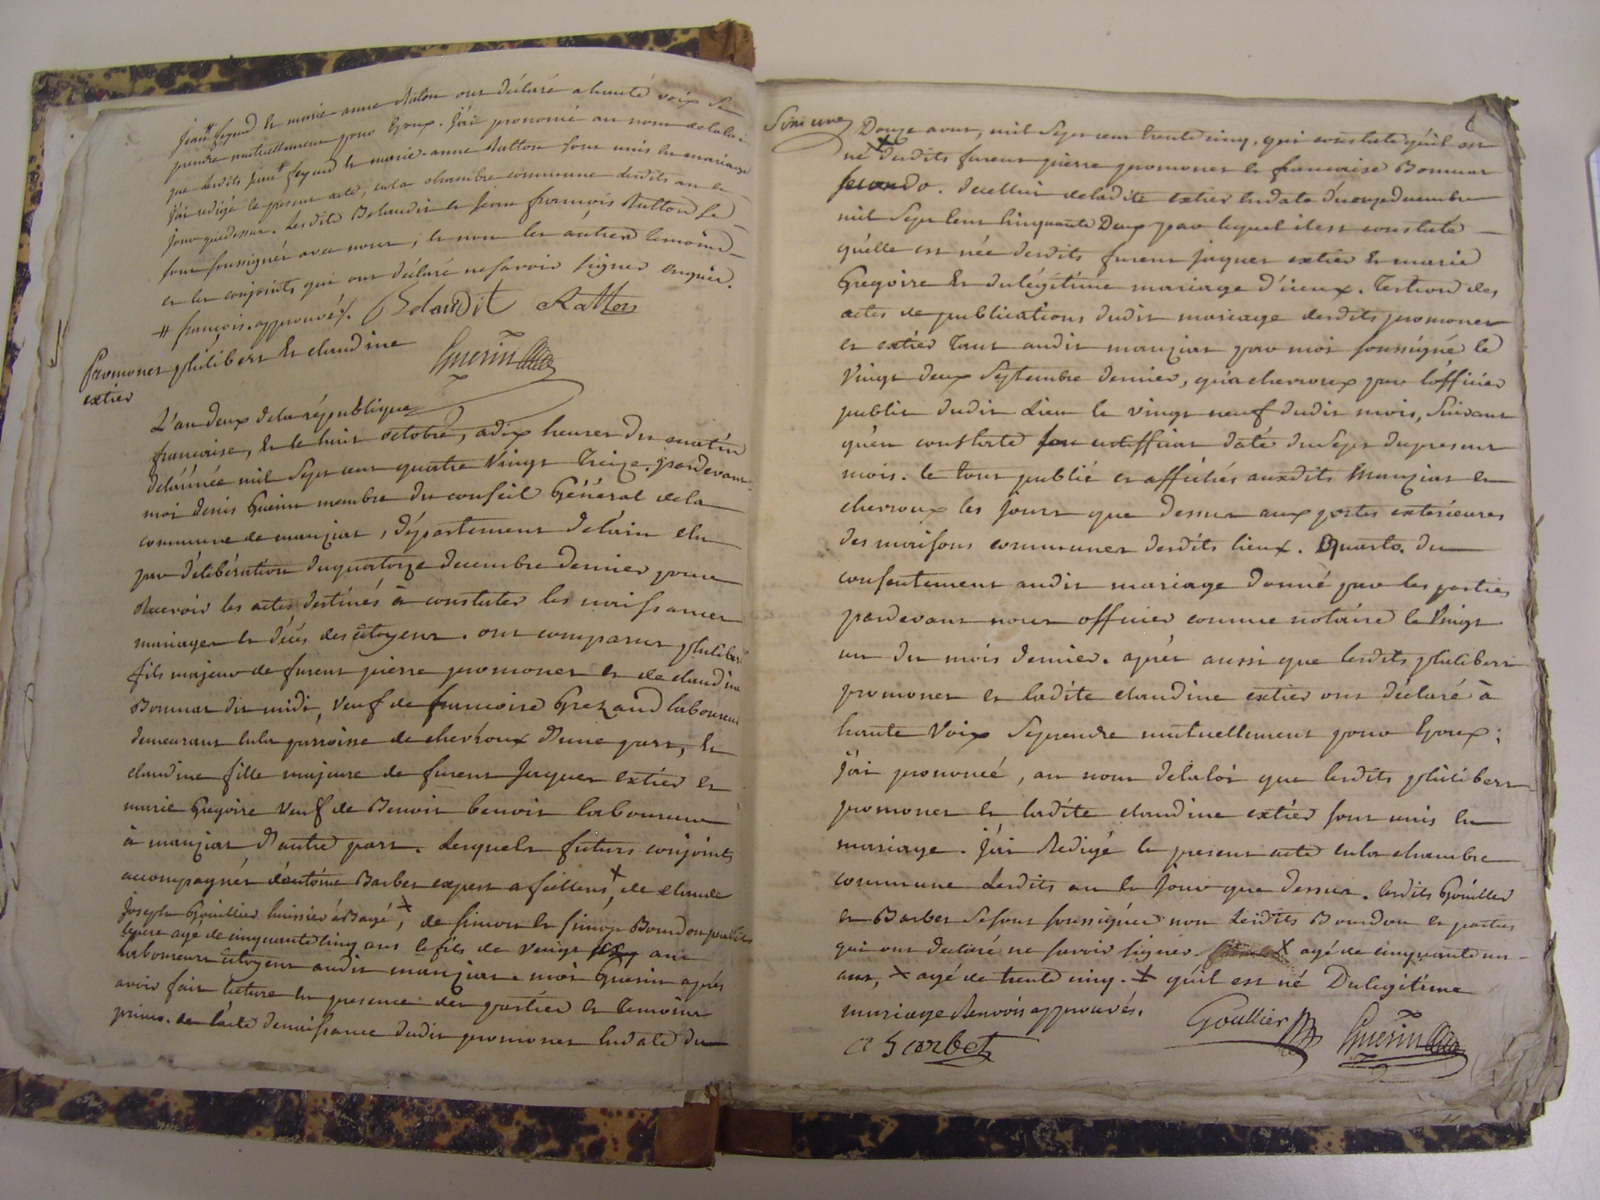 jean feyeud et marie anne Ratton ont déclaré a haute voix se
prendre mutuellement pour Epoux. j'ai prononcé au nom de la loi
que lesdits jean feyeud et marie-anne Ratton sont unis en mariage
j'ai redigé le présent acte, en la chambre commune lesdits an et
jour que dessus. lesdits Belaudit et jean françois Ratton se
sont soussignés avec nous, et non les autres temoins
et les conjoints qui ont déclaré ne savoir signer enquis.
# françois. approuvé/. Belaudit Ratton
Guerin
Promonet philibert et claudine
extier
L'an deux de la république
francaise, et le huit octobre, a dix heures du matin
de l'année mil sept cent quatre vingt treize. pardevant
moi denis Guerin membre du conseil Général de la
commune de manziat, département de l'ain elu
par délibération du quatorze decembre dernier pour
recevoir les actes destinés à constater les naissances
mariages et décès des citoyens. ont comparus philibert
fils majeur de furent pierre promonet et de claudine
Bonnat du midi, veuf de francoise Grezaud laboureur
demeurant en la paroisse de chevroux d'une part, et
claudine fille majeure de furent jaques extier et
marie Gregoire veuf de Benoit benoit laboureur
à manziat d'autre part. Lesquels futurs conjoints
accompagnés d'antoine Barbet expert a feillens +, de claude
joseph Gouillier huissier à Bagé +, de simon et simon Bourdon
pere agé de cinquante cinq ans le fils de vingt ans
laboureurs citoyens audit manziat. moi Guerin aprés
avoir fait lecture en presence des parties et temoins
primo. de l'acte de naissance dudit promonet en date du
Douze aout, mil sept cent trente cinq, qui constate qu'il est
né + desdits furent pierre promonet et francaise Bonnat
secundo. de celui de ladite extier en date du onze decembre
mil sept cent cinquante Deux par lequel il est constaté
qu'elle est née desdits furent jaques extier et marie
Gregoire et du légitime mariage d'iceux. Tertio des
actes de publications dudit mariage desdits promonet
et extier tant audit manziat par moi soussigné le
vingt deux septembre dernier, qu'a chevroux par l'officier
public dudit Lieu le vingt neuf dudit mois, suivant
qu'en constate son certificat daté du sept du present
mois. le tout publié et affichés auxdits Manziat et
chevroux les jours que dessus aux portes exterieures
des maisons communes desdits lieux. Quarto. du
consentement audit mariage donné par les parties
pardevant nous officier comme notaire le vingt
un du mois dernier. aprés aussi que lesdits philibert
promonet et ladite claudine extier ont déclaré à
haute voix se prendre mutuellement pour Epoux;
j'ai prononcé, au nom de la loi que lesdits philibert
promonet et ladite claudine extier sont unis en
mariage. j'ai Redigé le present acte en la chambre
commune Lesdits an et jour que dessus. lesdits Gouillier
et Barbet se sont soussignés non Lesdits Bourdon et parties
qui ont declaré ne savoir signer. + agé de cinquante un
ans, + agé de trente cinq. + qu'il est né Du legitime
mariage Renvois approuvés.
a Barbet Goullier Guerin